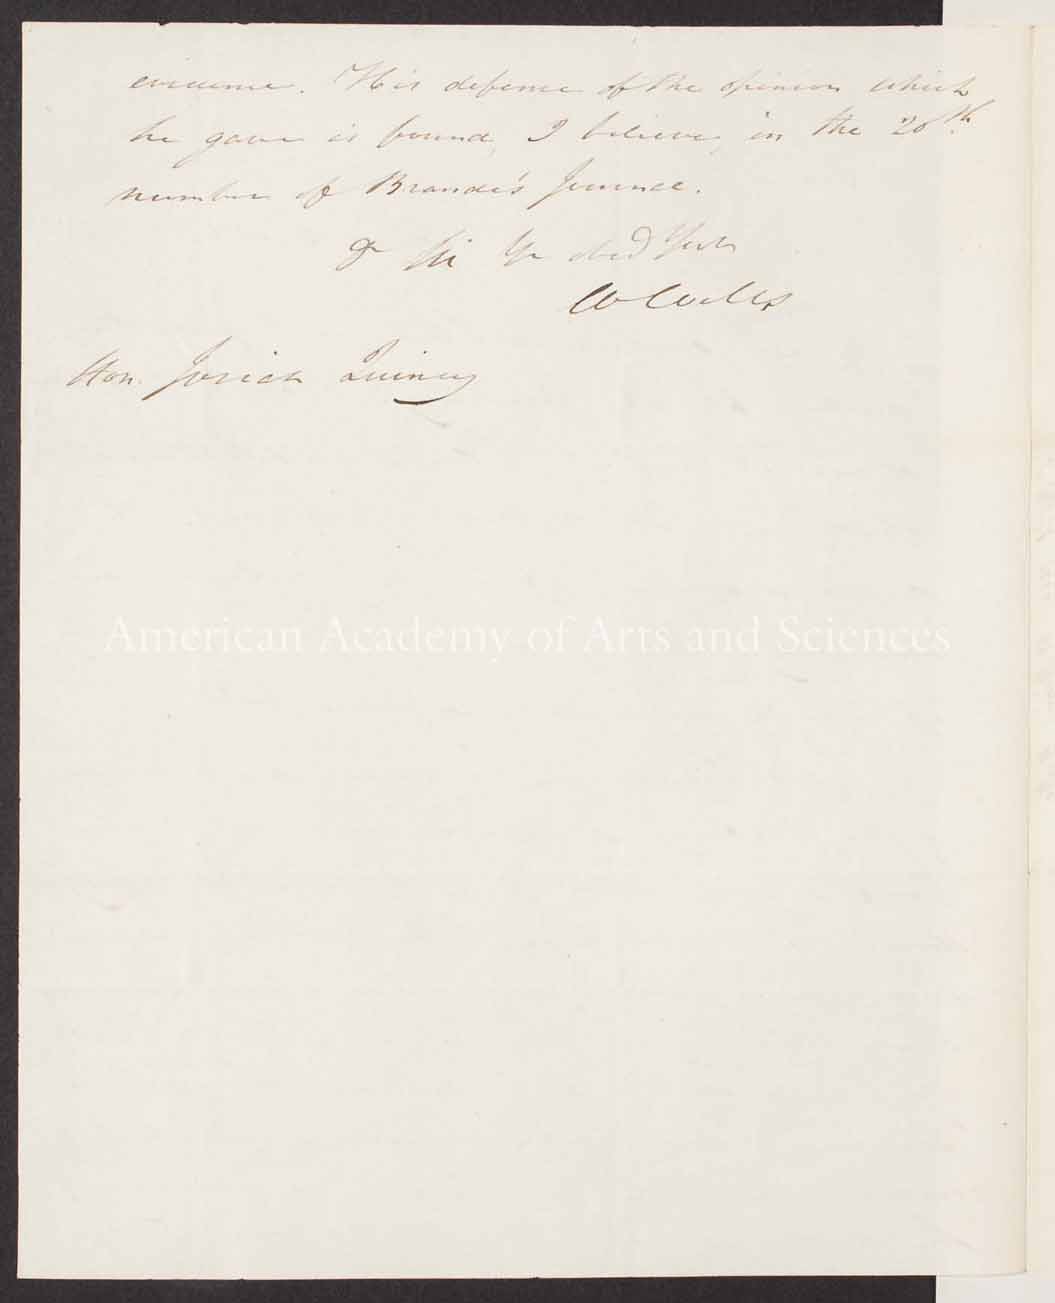 evidence. His defence of the opinion which
he gave is found, I believe, in the 20th
number of Brande's Journal.
Sir Yr obed Servt
W Wells
Hon. Josiah Quincy
American Academy of Arts and Sciences